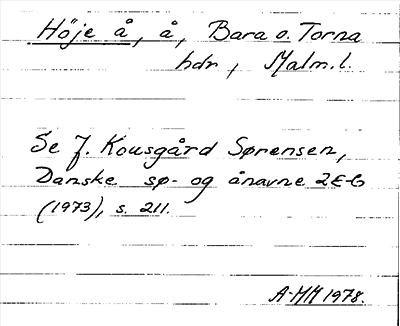 Höje å, å, Bara o. Torna
hdr, Malm. l.
Se J. Kousgård Sørensen,
Danske sø- og ånavne 2 E-G
(1973), s. 211.
A-MH 1978.